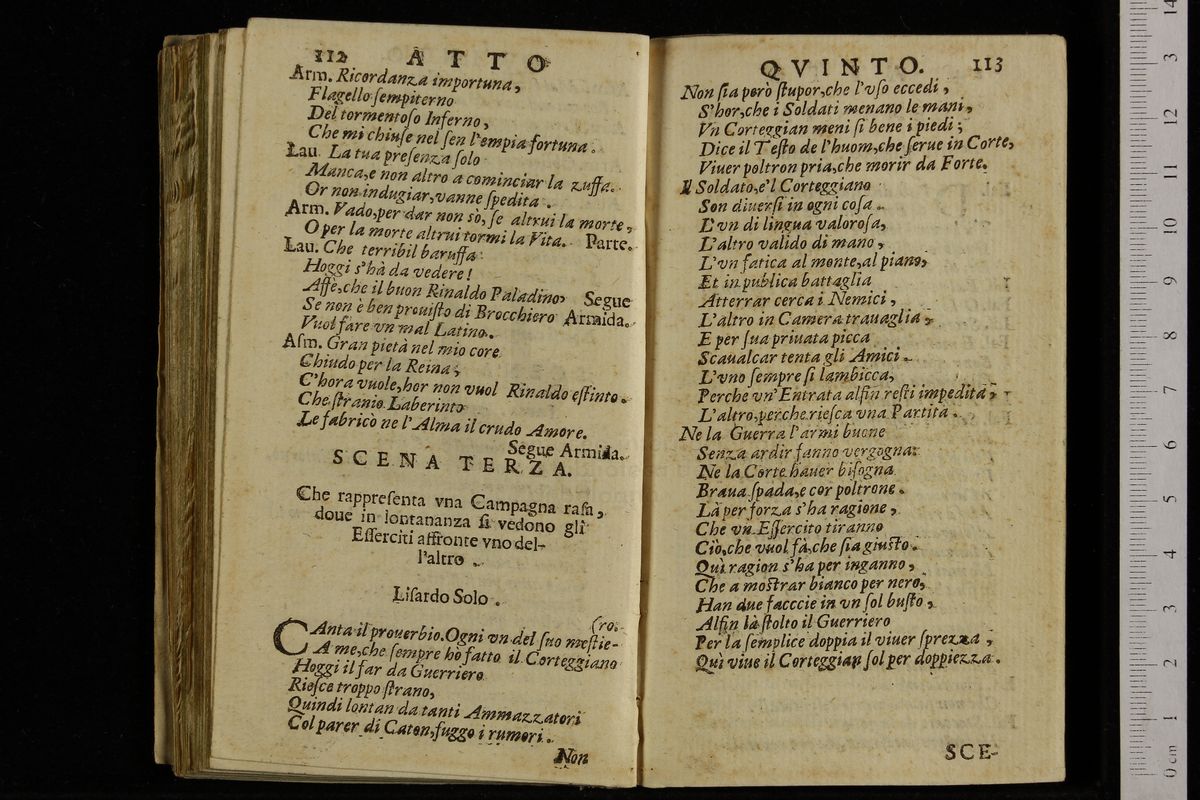 112 ATTO
Arm. Ricordanza importuna,
Flagello ſempiterno
Del tormentoſo Inferno,
Che mi chiuſe nel ſen l'empia fortuna.
Lau. La tua preſenza ſolo
Manca, e non altro a cominciar la zuffa.
Or non indugiar, vanne ſpedita.
Arm. Vado, per dar non sò, ſe altrui la morte,
O per la morte altrui tormi la Vita. Parte.
Lau. Che terribil baruffa
Hoggi s'hà da vedere!
Affè, che il buon Rinaldo Paladino, Segue
Se non è ben prouiſto di Brocchiero Armida.
Vuol fare vn mal Latino.
Aſm. Gran pietà nel mio core
Chiudo per la Reina;
C'hora vuole, hor non vuol Rinaldo eſtinto.
Che ſtranio Laberinto
Le fabricò ne l'Alma il crudo Amore.
Segue Armida.
SCENA TERZA.
Che rappreſenta vna Campagna raſa,
doue in lontananza ſi vedono gli
Eſſerciti affronte vno del-
l'altro.
Liſardo Solo.
(ro.
CAnta il prouerbio. Ogni vn del ſuo meſtie-
A me, che ſempre hò fatto il Corteggiano
Hoggi il far da Guerriero
Rieſce troppo ſtrano,
Quindi lontan da tanti Ammazzatori
Col parer di Caton, fuggo i rumori.
Non
QVINTO. 113
Non ſia però ſtupor, che l'vſo eccedi,
S'hor, che i Soldati menano le mani,
Vn Corteggian meni ſi bene i piedi;
Dice il Teſto de l'huom, che ſerue in Corte,
Viuer poltron pria, che morir da Forte.
Il Soldato, e'l Corteggiano
Son diuerſi in ogni coſa.
L'vn di lingua valoroſa,
L'altro valido di mano,
L'vn fatica al monte, al piano,
Et in publica battaglia
Atterrar cerca i Nemici,
L'altro in Camera trauaglia,
E per ſua priuata picca
Scaualcar tenta gli Amici.
L'vno ſempre ſi lambicca,
Perche vn'Entrata alfin reſti impedita,
L'altro, perche rieſca vna Partita.
Ne la Guerra l'armi buone
Senza ardir fanno vergogna:
Ne la Corte hauer biſogna
Braua ſpada, e cor poltrone.
Là per forza s'ha ragione,
Che vn Eſſercito tiranno
Ciò, che vuol fà, che ſia giuſto.
Quì ragion s'ha per inganno,
Che a moſtrar bianco per nero,
Han due facccie in vn ſol buſto,
Alfin là ſtolto il Guerriero
Per la ſemplice doppia il viuer ſprezza,
Quì viue il Corteggian ſol per doppiezza.
SCE-
0 cm 1 2 3 4 5 6 7 8 9 10 11 12 13 14